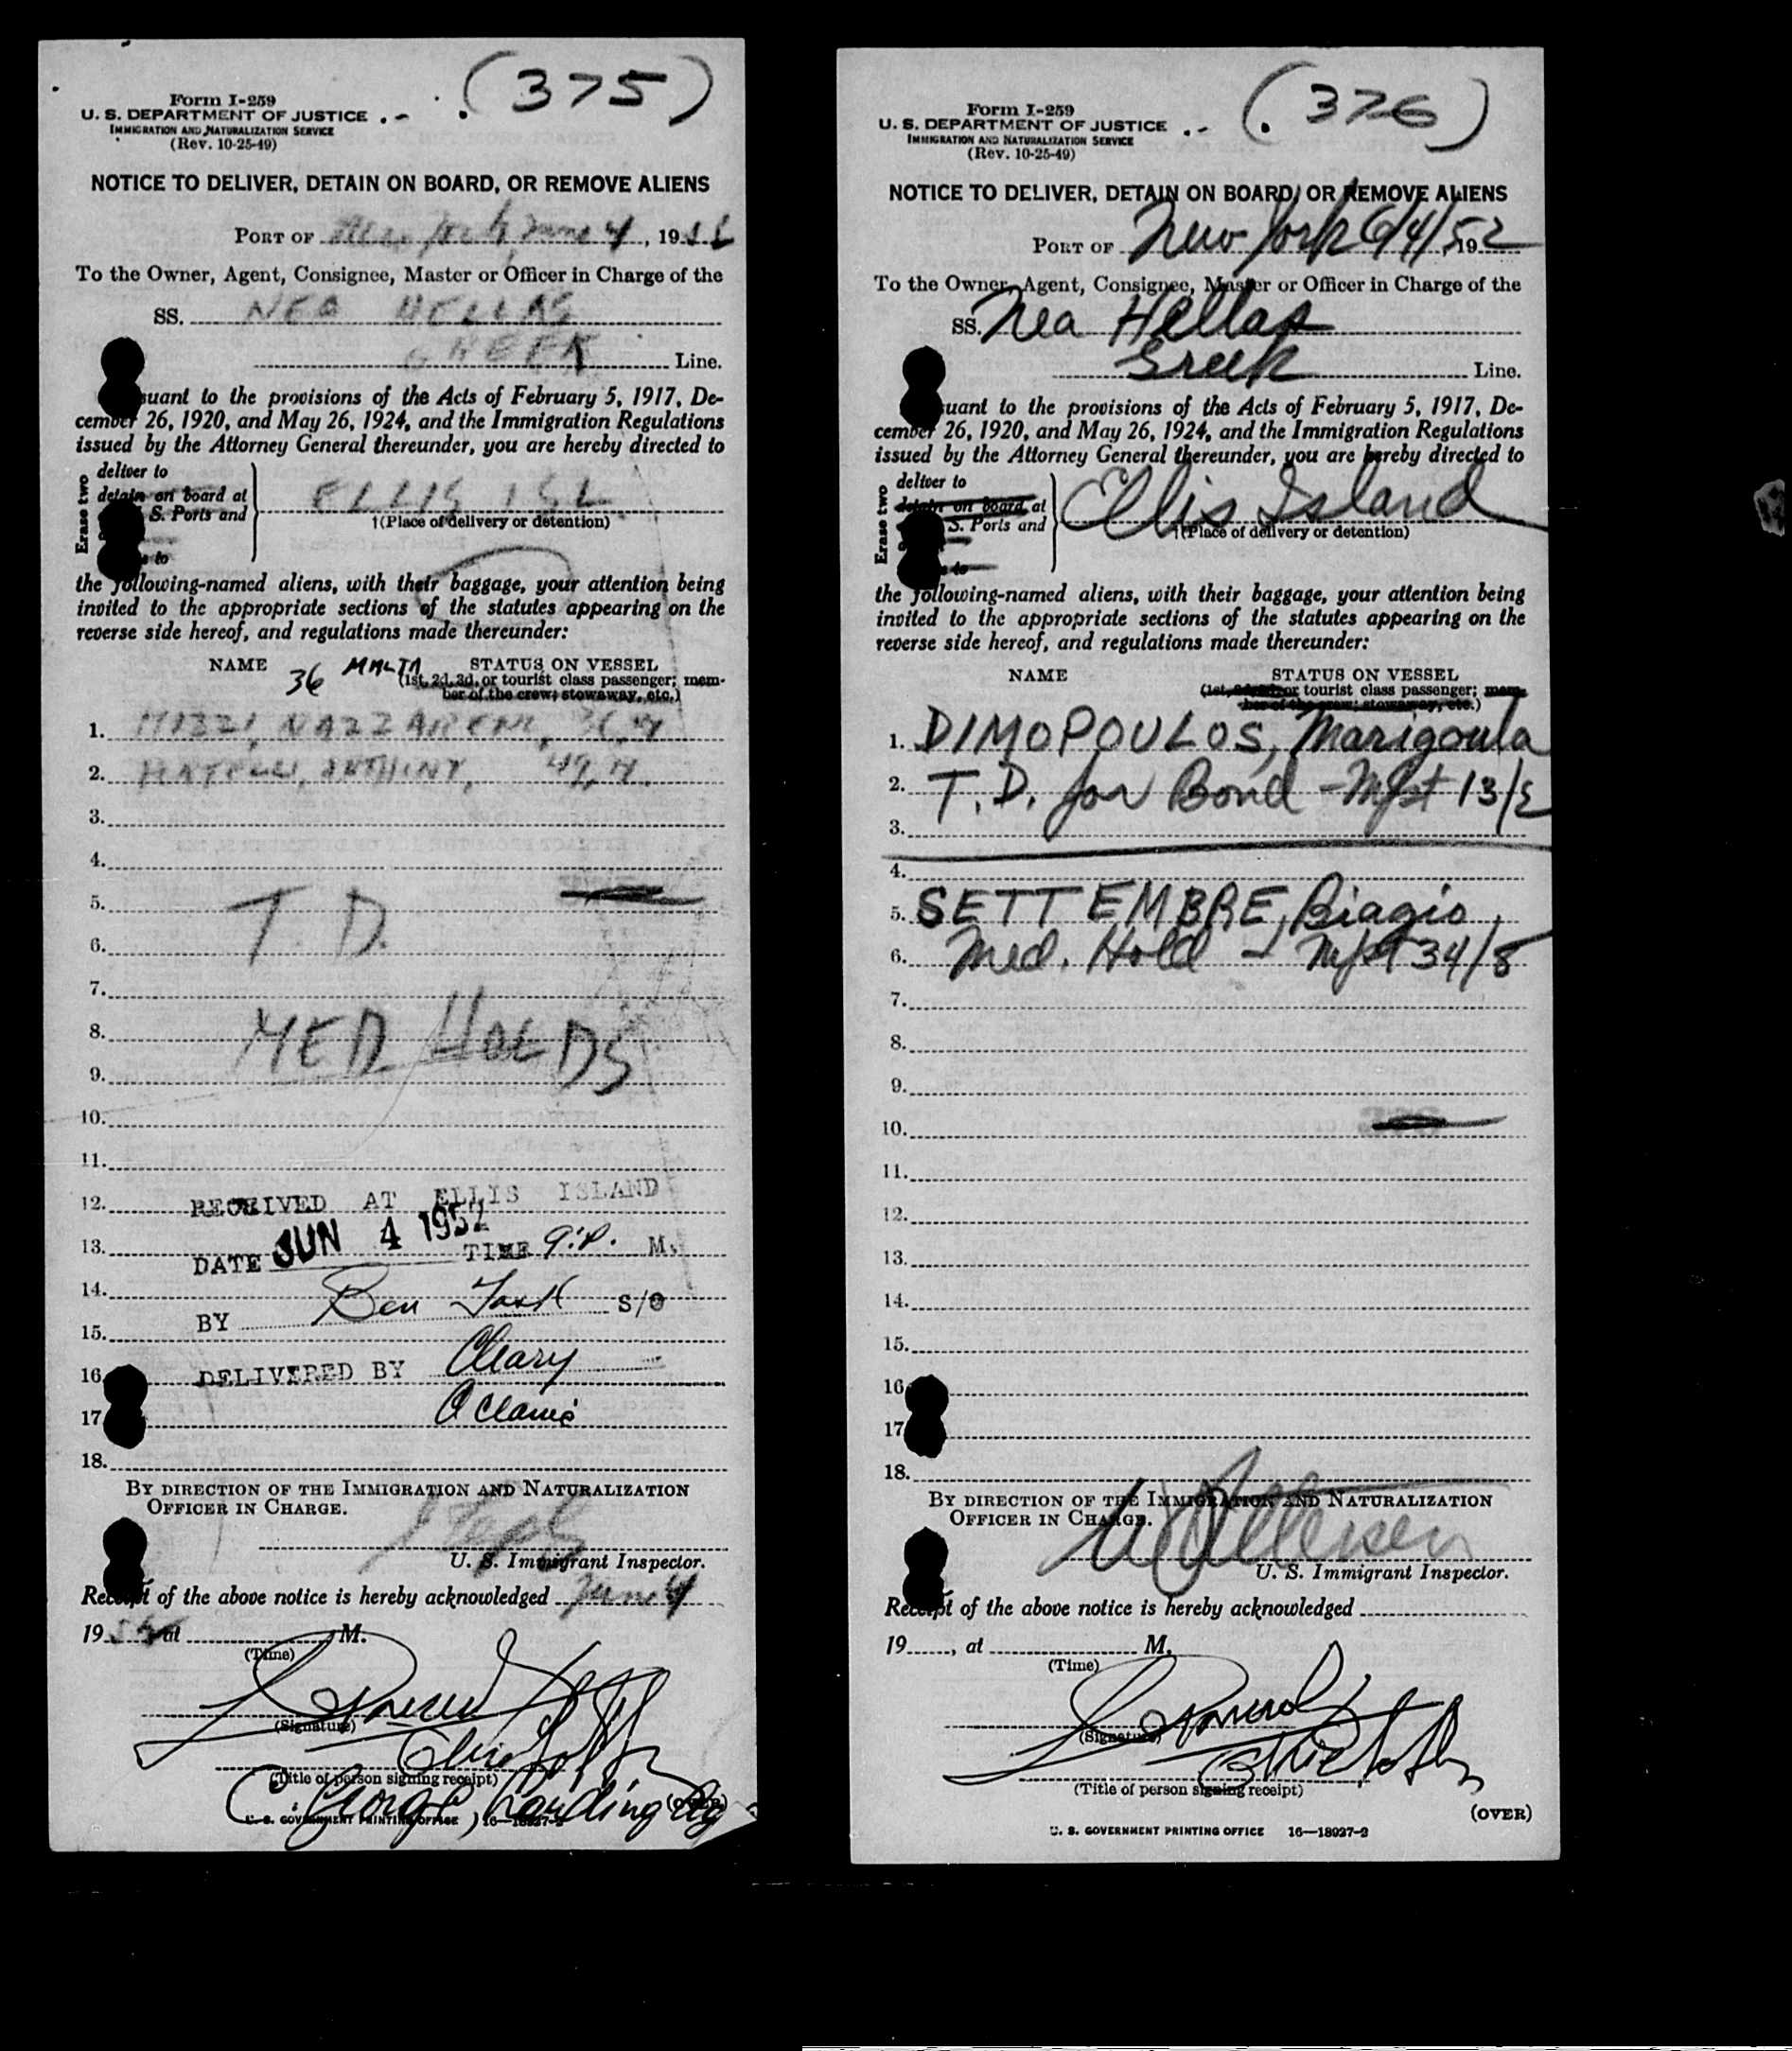 (375)
Form I-259
U. S. DEPARTMENT OF JUSTICE
IMMIGRATION AND NATURALIZATION SERVICE
(Rev. 10-25-49)
NOTICE TO DELIVER, DETAIN ON BOARD, OR REMOVE ALIENS
PORT OF New York, June 4, 19
To the Owner, Agent, Consignee, Master or Officer in Charge of the
SS. NEA HELLAS
GREEK Line.
suant to the provisions of the Acts of February 5, 1917, De-
cember 26, 1920, and May 26, 1924, and the Immigration Regulations
issued by the Attorney General thereunder, you are hereby directed to
Erase two
deliver to
detain on board at
S. Ports and
to
ELLIS ISL.
†(Place of delivery or detention)
the following-named aliens, with their baggage, your attention being
invited to the appropriate sections of the statutes appearing on the
reverse side hereof, and regulations made thereunder:
NAME 36 MALTA STATUS ON VESSEL
(1st, 2d, 3d, or tourist class passenger; mem-
ber of the crew; stowaway, etc.)
1. NAZZARENE,
2. ANTHONY,
3.
4.
5. T. D.
6.
7.
8. MED HOLDS
9.
10.
11.
12. RECEIVED AT ELLIS ISLAND
13. DATE JUN 4 1952 TIME 9:P. M.
14. BY Ben S/O
15.
16. DELIVERED BY Cleary
17.
18.
BY DIRECTION OF THE IMMIGRATION AND NATURALIZATION
OFFICER IN CHARGE.
U. S. Immigrant Inspector.
Receipt of the above notice is hereby acknowledged June 4
19 at M.
(Time)
(Signature)
(Title of person signing receipt)
George Harding
(OVER)
U. S. GOVERNMENT PRINTING OFFICE 16—18927-2
(376)
Form I-259
U. S. DEPARTMENT OF JUSTICE
IMMIGRATION AND NATURALIZATION SERVICE
(Rev. 10-25-49)
NOTICE TO DELIVER, DETAIN ON BOARD, OR REMOVE ALIENS
PORT OF New York 6/4/52, 19
To the Owner, Agent, Consignee, Master or Officer in Charge of the
SS. Nea Hellas
Greek Line.
suant to the provisions of the Acts of February 5, 1917, De-
cember 26, 1920, and May 26, 1924, and the Immigration Regulations
issued by the Attorney General thereunder, you are hereby directed to
Erase two
deliver to
detain on board at
S. Ports and
to
Ellis Island
†(Place of delivery or detention)
the following-named aliens, with their baggage, your attention being
invited to the appropriate sections of the statutes appearing on the
reverse side hereof, and regulations made thereunder:
NAME STATUS ON VESSEL
(1st, 2d, 3d, or tourist class passenger; mem-
ber of the crew; stowaway, etc.)
1. DIMOPOULOS, Marigoula
2. T.D. for Bond - Mfst 13/2
3.
4.
5. SETTEMBRE, Biagio,
6. Med. Hold - Mfst 34/8
7.
8.
9.
10.
11.
12.
13.
14.
15.
16.
17.
18.
BY DIRECTION OF THE IMMIGRATION AND NATURALIZATION
OFFICER IN CHARGE.
U. S. Immigrant Inspector.
Receipt of the above notice is hereby acknowledged
19 , at M.
(Time)
(Signature)
(Title of person signing receipt)
(OVER)
U. S. GOVERNMENT PRINTING OFFICE 16—18927-2